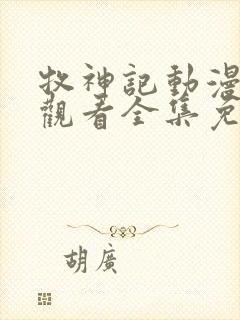 牧神記動漫
觀看全集免
胡廣